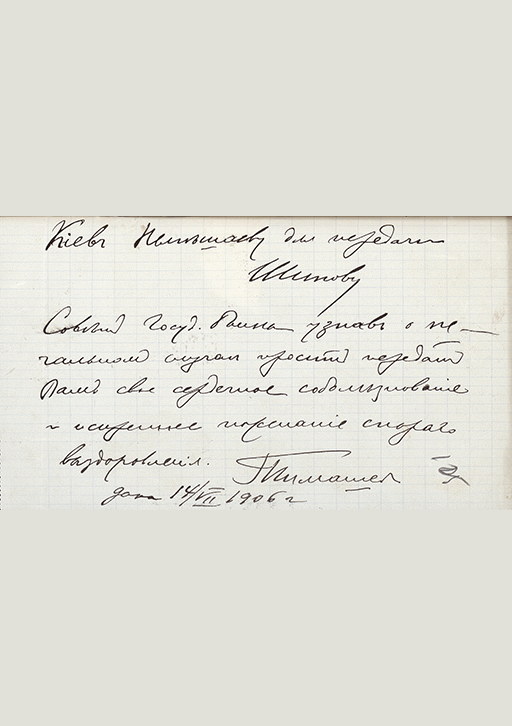 Кіевъ Немѣшаеву для передачи
Шипову
Совѣтъ Госуд. Банка узнавъ о пе-
чальномъ случаѣ проситъ передать
Вамъ свое сердечное соболѣзнованіе
и искреннее пожеланіе скораго
выздоровленія. Тимашев
дана 14/VII 1906 г